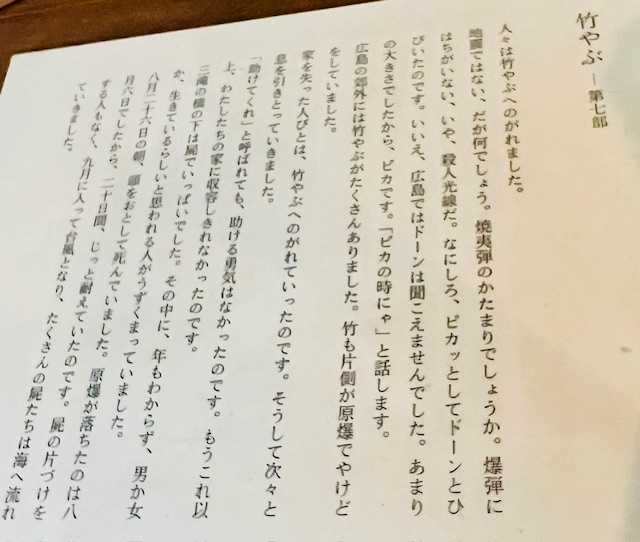 竹やぶ ―第七部
人々は竹やぶへのがれました。
地震ではない、だが何でしょう。焼夷弾のかたまりでしょうか。爆弾に
はちがいない、いや、殺人光線だ。なにしろ、ピカッとしてドーンとひ
びいたのです。いいえ、広島ではドーンは聞こえませんでした。あまり
の大きさでしたから、ピカです。「ピカの時にゃ」と話します。
広島の郊外には竹やぶがたくさんありました。竹も片側が原爆でやけど
をしていました。
家を失った人びとは、竹やぶへのがれていったのです。そうして次々と
息を引きとっていきました。
「助けてくれ」と呼ばれても、助ける勇気はなかったのです。もうこれ以
上、わたしたちの家に収容しきれなかったのです。
三滝の橋の下は屍でいっぱいでした。その中に、年もわからず、男か女
か、生きているらしいと思われる人がうずくまっていました。
八月二十六日の朝、頭をおとして死んでいました。原爆が落ちたのは八
月六日でしたから、二十日間、じっと耐えていたのです。屍の片づけを
する人もなく、九月に入って台風となり、たくさんの屍たちは海へ流れ
ていきました。